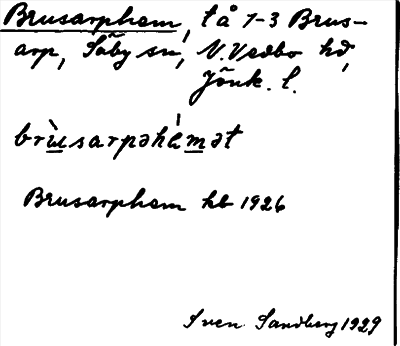 Brusarphem, tå 1-3 Brus-
arp, Säby sn, N. Vedbo hd,
Jönk. l.
brùsarpəhèmət
Brusarphem hb 1926
Sven Sandberg 1929